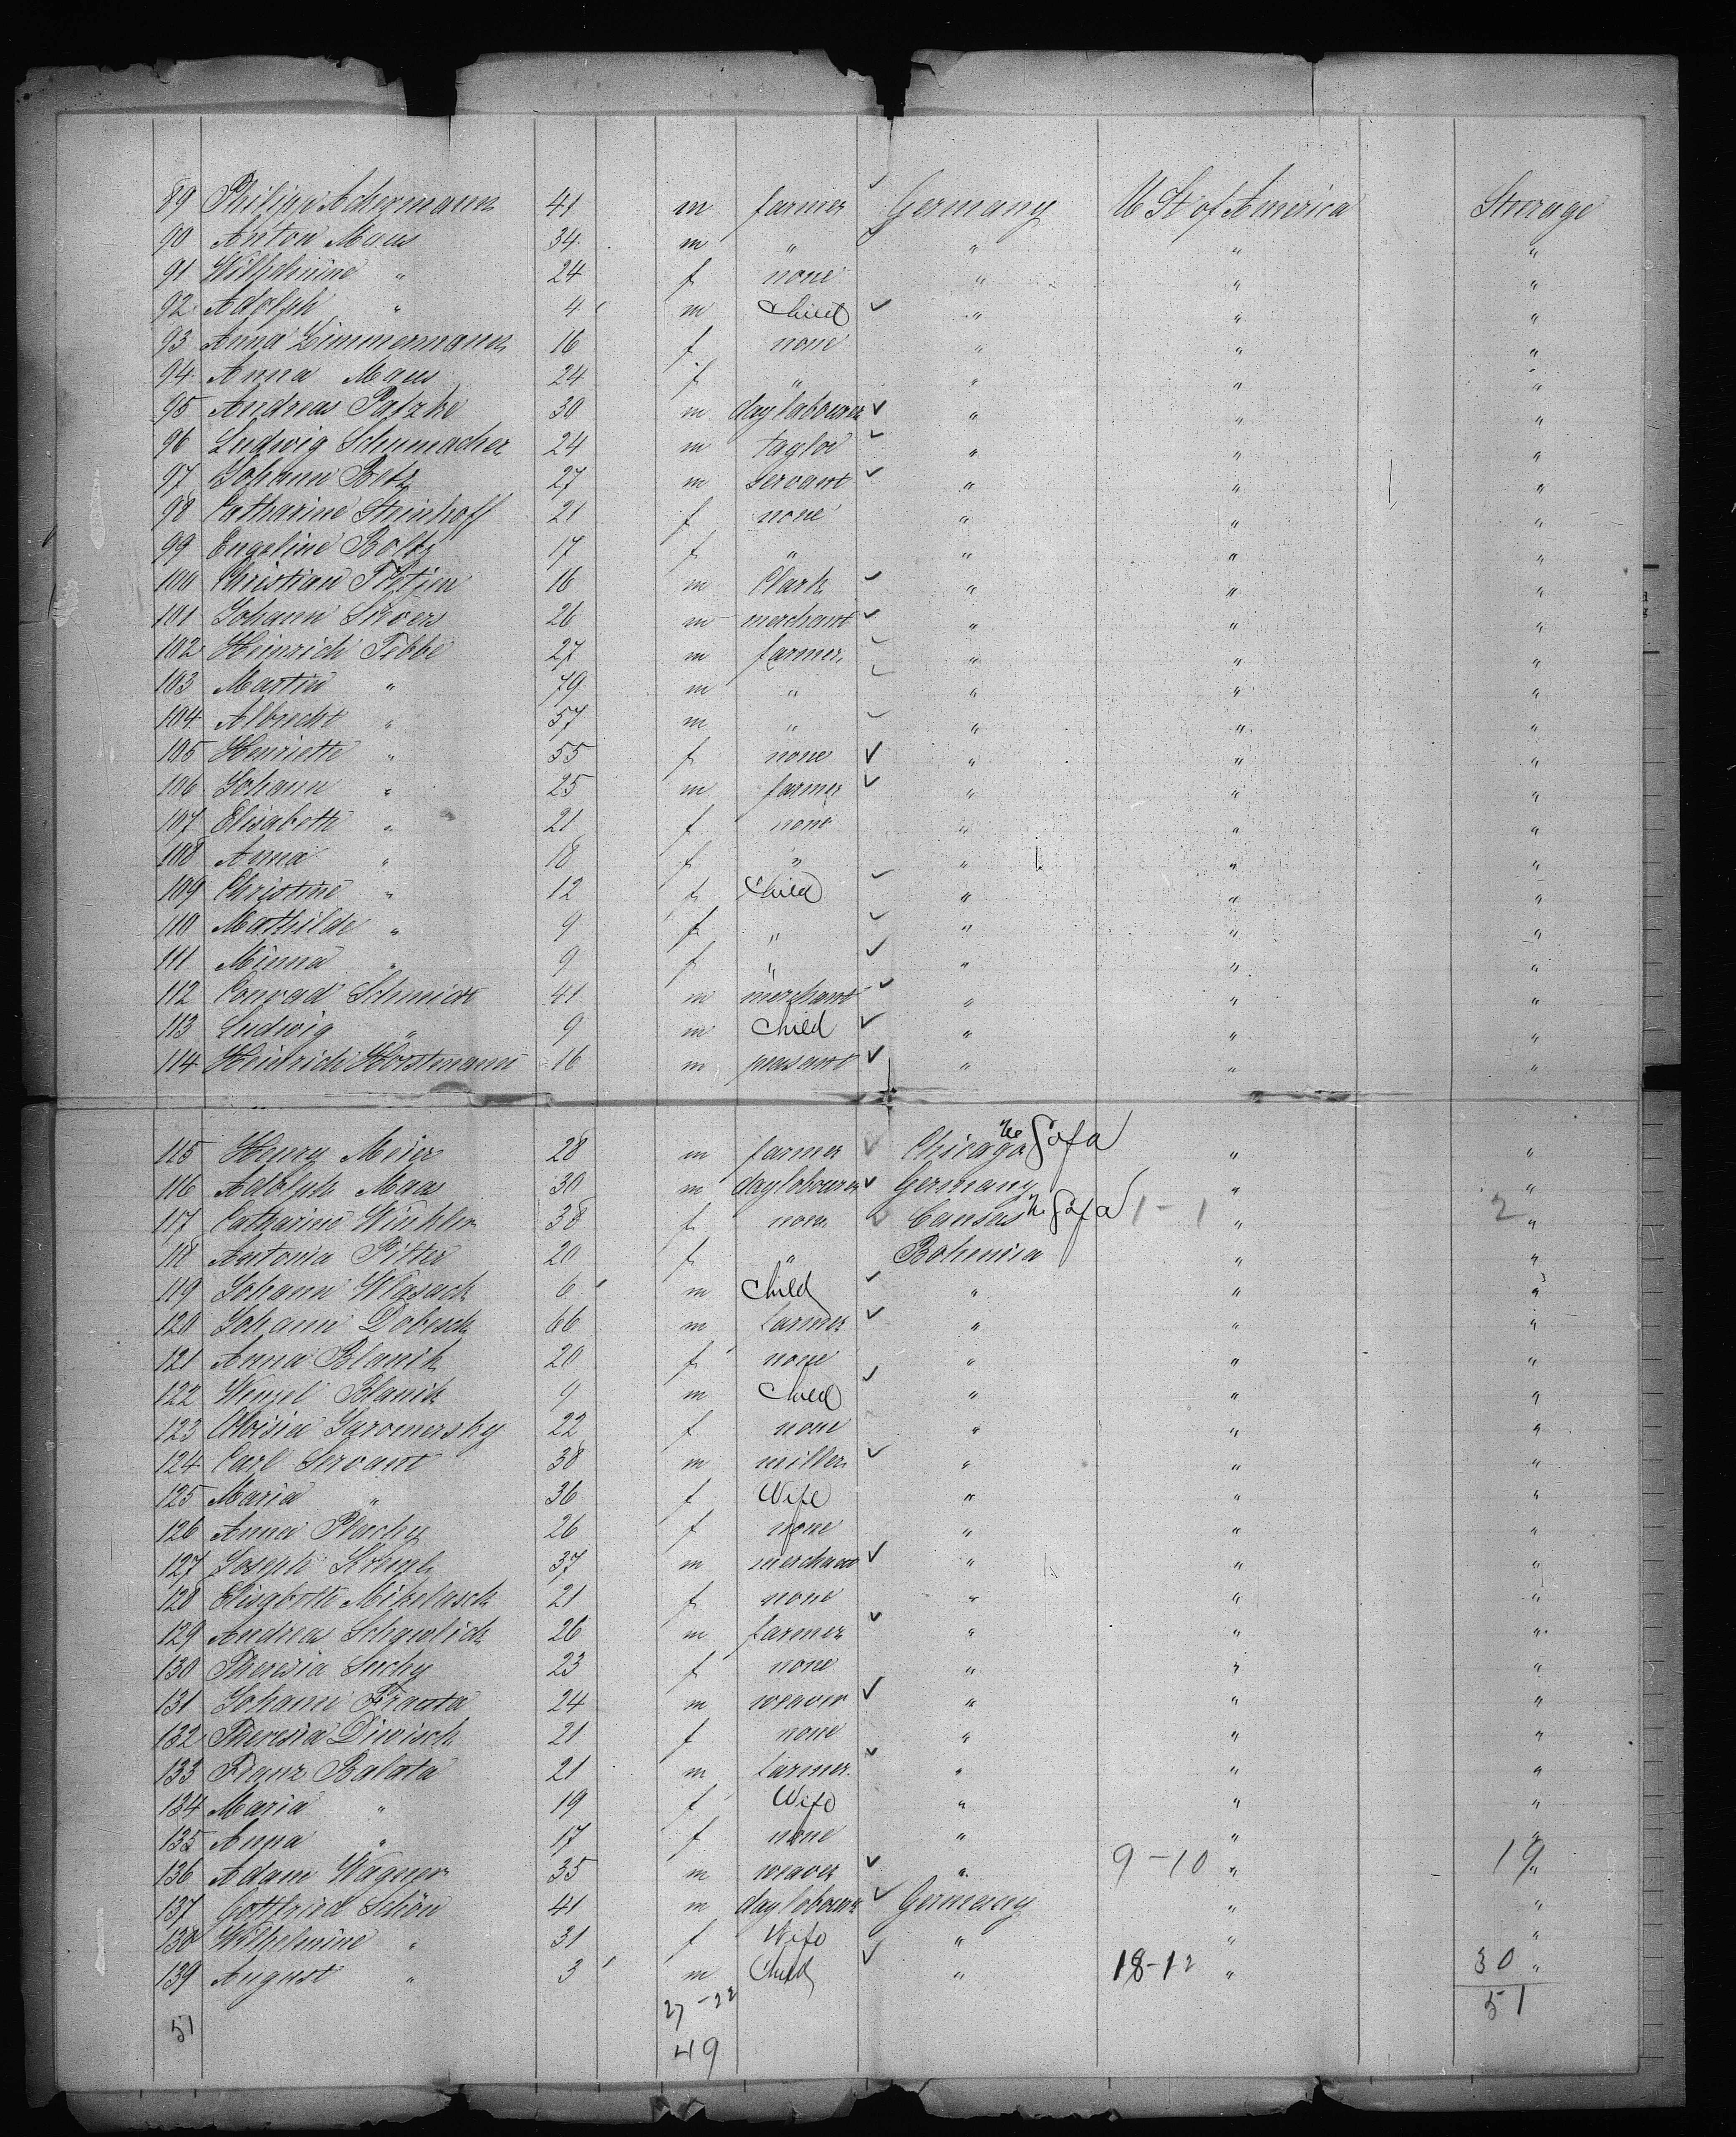 89 Philipp Achermann 41 m farmer ✓ Germany U St of America Steerage
90 Anton Maus 34 m " ✓ " " "
91 Wilhelmine " 24 f none " " "
92 Adolph " 4 m Child ✓ " " "
93 Anna Zimmermann 16 f none " " "
94 Anna Maus 24 f " " " "
95 Andreas Patzke 30 m daylabourer ✓ " " "
96 Ludwig Schumacher 24 m taylor ✓ " " "
97 Johann Betz 27 m servant ✓ " " "
98 Catharine Steinhoff 21 f none " " "
99 Engeline Boltz 17 f " " " "
100 Christian Tietjen 16 m Clark ✓ " " "
101 Johann Sievers 26 m merchant ✓ " " "
102 Heinrich Tebbe 27 m farmer ✓ " " "
103 Martin " 79 m " ✓ " " "
104 Albrecht " 57 m " ✓ " " "
105 Henriette " 55 f none ✓ " " "
106 Johann " 25 m farmer ✓ " " "
107 Elisabeth " 21 f none " " "
108 Anna " 18 f " " " "
109 Christine " 12 f Child ✓ " " "
110 Mathilde " 9 f " ✓ " " "
111 Minna " 9 f " ✓ " " "
112 Conrad Schmidt 41 m merchant ✓ " " "
113 Ludwig " 9 m Child ✓ " " "
114 Heinrich Horstmann 16 m peasant ✓ " " "
115 Henry Meier 28 m farmer ✓ Chicago " "
116 Adolph Maas 30 m daylobourer ✓ Germany " "
117 Catharine Winkler 38 f none ✓ Cansas 1-1 " 2 "
118 Antonia Pitter 20 f " Bohemia " "
119 Johann Wlasack 6 m Child ✓ " " "
120 Johann Dobesch 66 m farmer ✓ " " "
121 Anna Blanik 20 f none " " "
122 Wenzel Blanik 9 m Child ✓ " " "
123 Aloisia Jaromersky 22 f none " " "
124 Carl Servant 38 m miller ✓ " " "
125 Maria " 36 f Wife " " "
126 Anna Plachy 26 f none " " "
127 Joseph 37 m merchant ✓ " " "
128 Elisabeth Mikolasch 21 f none " " "
129 Andreas 26 m farmer ✓ " " "
130 Theresia Suchy 23 f none " " "
131 Johann 24 m weaver ✓ " " "
132 Theresia Diwisch 21 f none " " "
133 Franz Balata 21 m farmer ✓ " " "
134 Maria " 19 f Wife " " "
135 Anna " 17 f none " " "
136 Adam Wagner 35 m weaver ✓ " 9-10 " 19 "
137 Gottfried Schön 41 m daylobourer ✓ Germany " "
138 Wilhelmine " 31 f Wife " " "
139 August " 3 m Child ✓ " 18-12 " 30 "
51 27-22 51
49